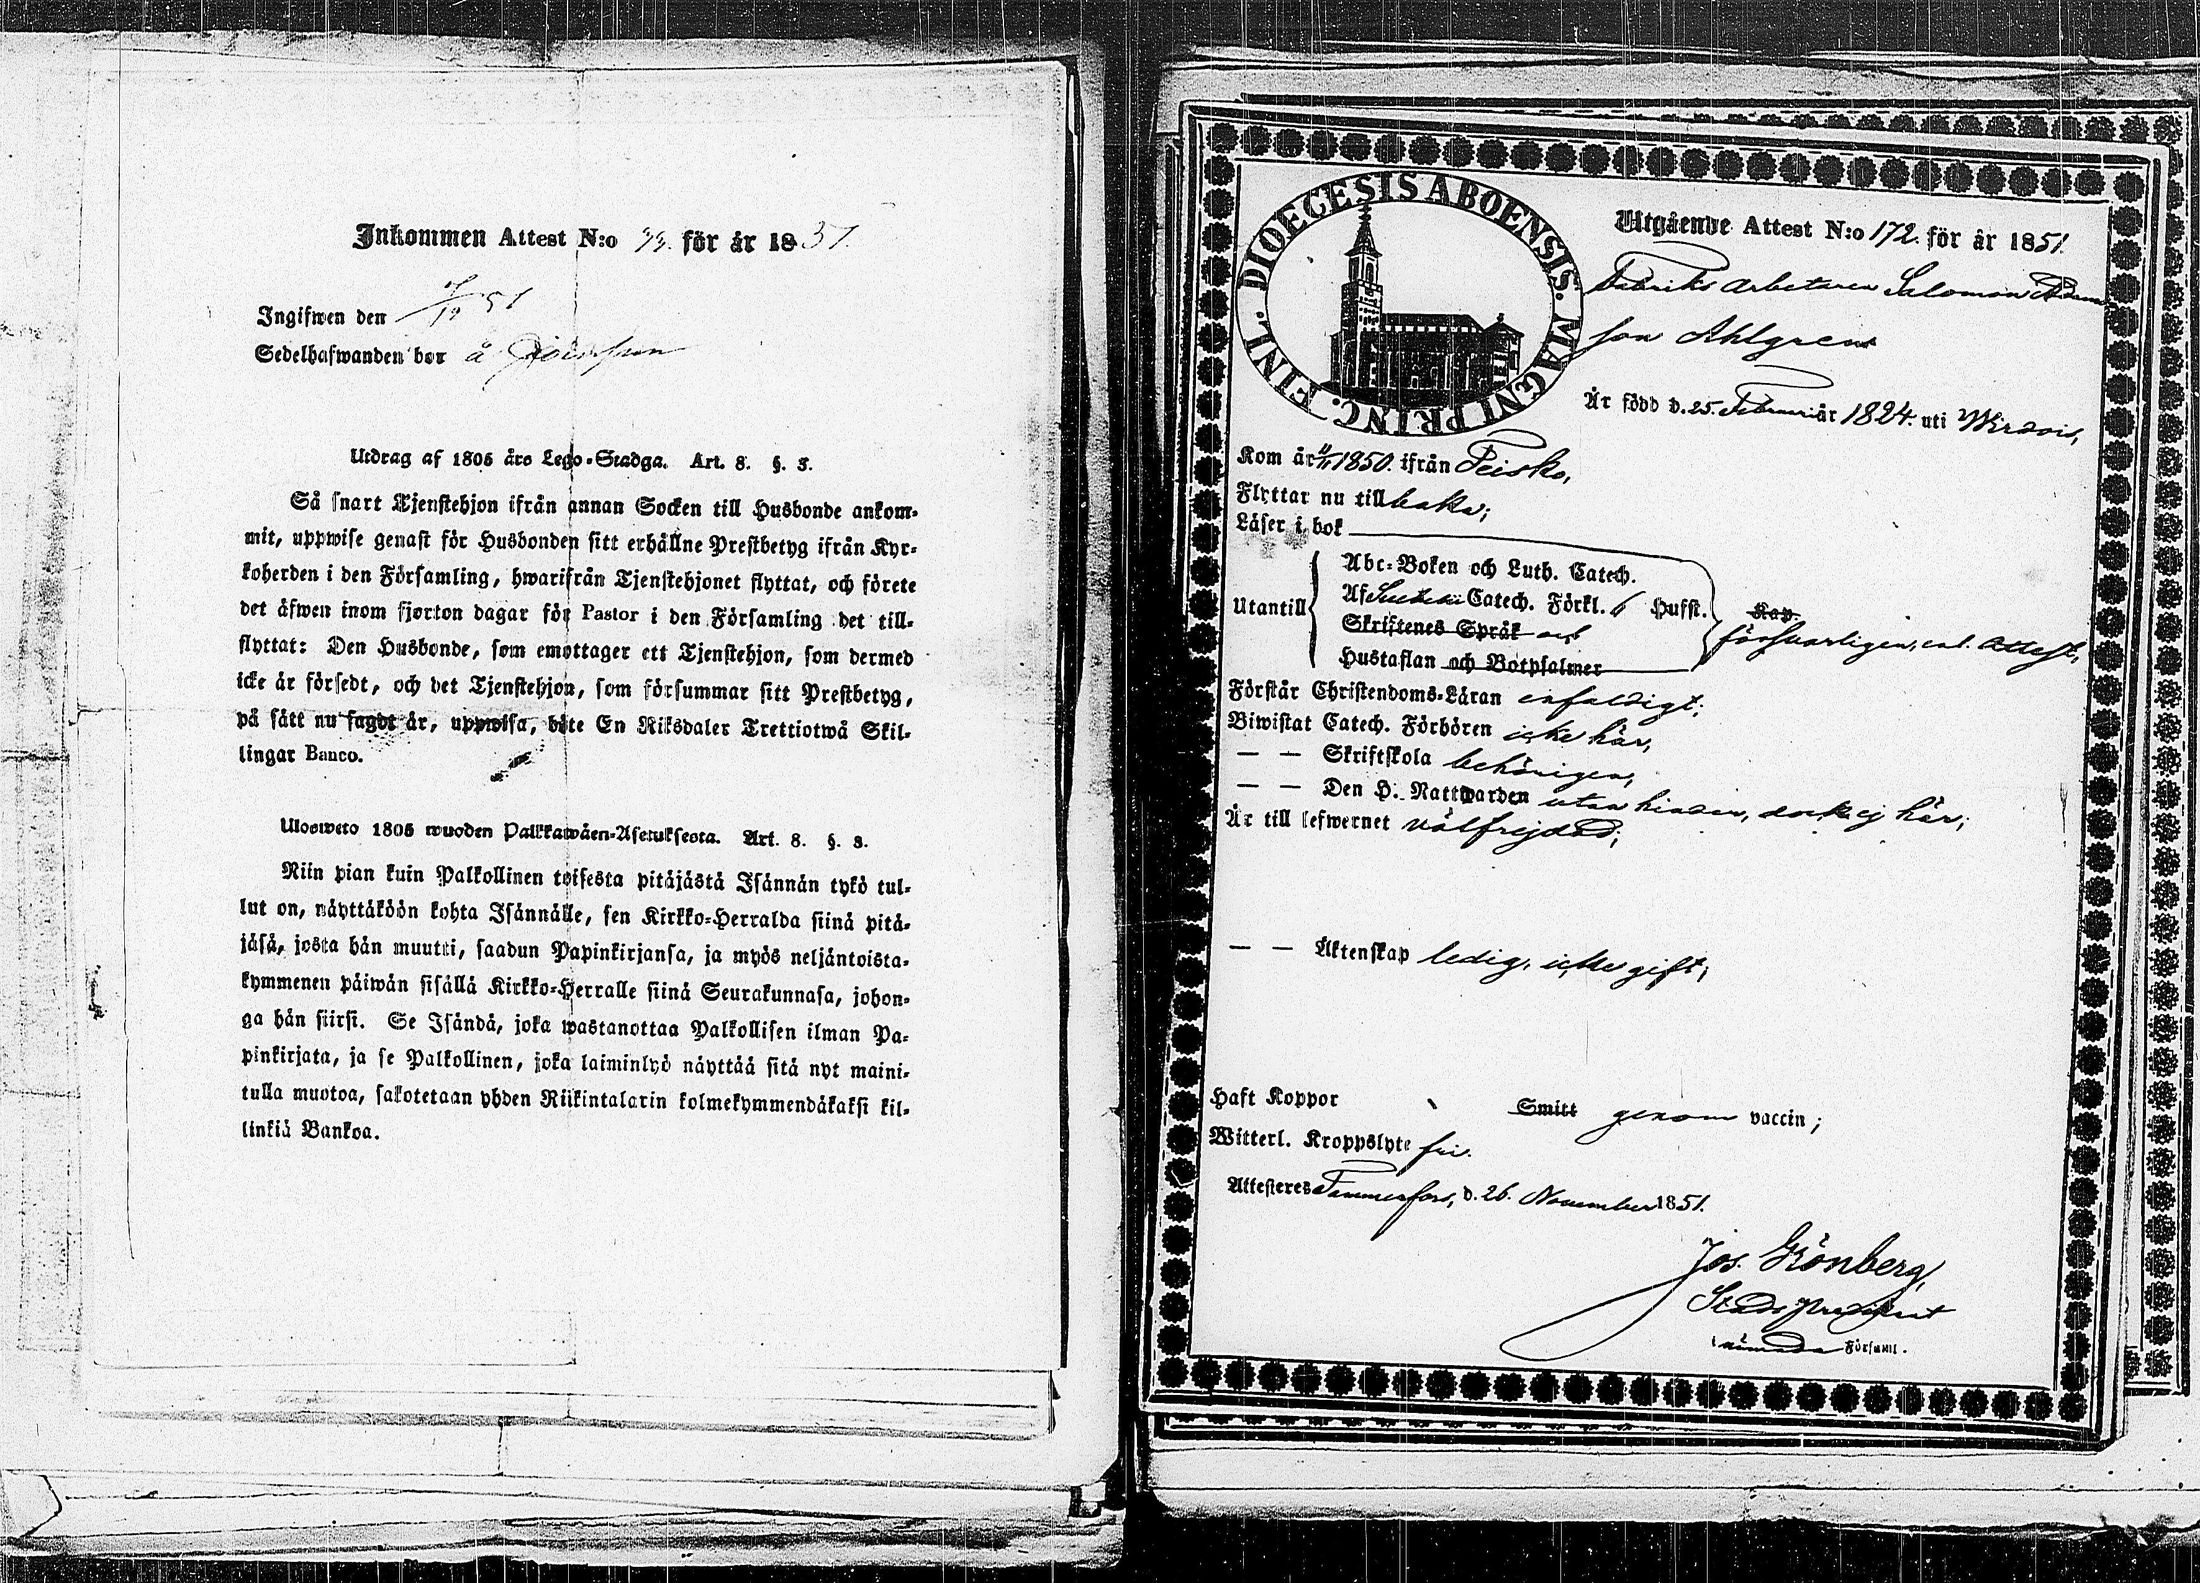 Inkommen Attest N:o för år 18
Ingifwen den 51
Sedelhafwanden bor å
Utdrag af 1805 års Lego-Stadga. Art. 8. §. 3.
Så snart Tjenstehjon ifrån annan Socken till Husbonde ankom-
mit, uppwise genast för Husbonden sitt erhållne Prestbetyg ifrån Kyr-
koherden i den Församling, hwarifrån Tjenstehjonet flyttat, och förete
det äfwen inom fjorton dagar för Pastor i den Församling det till-
flyttat: Den Husbonde, som emottager ett Tjenstehjon, som dermed
icke är försedt, och det Tjenstehjon, som försummar sitt Prestbetyg,
på sätt nu sagdt är, uppwisa, böte En Riksdaler Trettiotwå Skil-
lingar Banco.
Uloswето 1805 wuoden Palkkawäen-Asetuksesta. Art. 8. §. 3.
Niin pian kuin Palkollinen toisesta pitäjästä Isännän tykö tul-
lut on, näyttäköön kohta Isännälle, sen Kirkko-Herralda siinä pitä-
jäsä, josta hän muutti, saadun Papinkirjansa, ja myös neljäntoista-
kymmenen päiwän sisällä Kirkko-Herralle siinä Seurakunnasa, johon-
ga hän siirsi. Se Isändä, joka wastanottaa Palkollisen ilman Pa-
pinkirjata, ja se Palkollinen, joka laiminlyö näyttää sitä nyt maini-
tulla muotoa, sakotetaan yhden Riikintalarin kolmekymmendäkaksi kil-
linkiä Bankoa.
DIOECESIS ABOENSIS. MAGNI PRINC. FINL.
Utgående Attest N:o 172. för år 1851.
Fabriks arbetaren Salomon Adams
son Ahlgren
Är född d. 25. Februari år 1824. uti Wirdois,
Kom år 1850. ifrån Teisko,
Flyttar nu till baka;
Läser i bok
Utantill
Abc-Boken och Luth. Catech.
Af Catech. Förkl. 6 Hufst.
Skriftenes Språk och
Hustaflan och Botpsalmer
Kap.
försvarligen, enl. Attest,
Förstår Christendoms-Läran enfaldigt;
Biwistat Catech. Förhören icke här,
— — Skriftskola behörigen,
— — Den H. Nattwarden utan hinder, dock ej här;
Är till lefwernet välfrejdad;
— — Äktenskap ledig, icke gift;
Haft Koppor Smitt genom vaccin;
Witterl. Kroppslyte fri.
Attesteres Tammerfors, d. 26. November 1851.
Jos. Grönberg,
Stads præd
nämnda Församl.